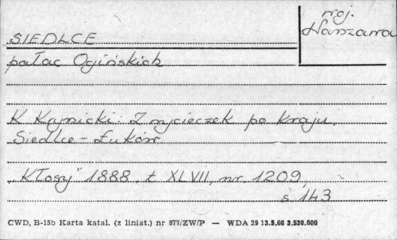 woj.
Warszawa
SIEDLCE
pałac Ogińskich
K. Kąjnicki: Z wycieczek po kraju.
Siedlce - Łuków
"Kłosy" 1888, t. XLVII, nr. 1209,
s. 143
CWD, B-15b Karta katal. (z liniat.) nr 877/ZW/P — WDA 29 13.5.66 2.530.000